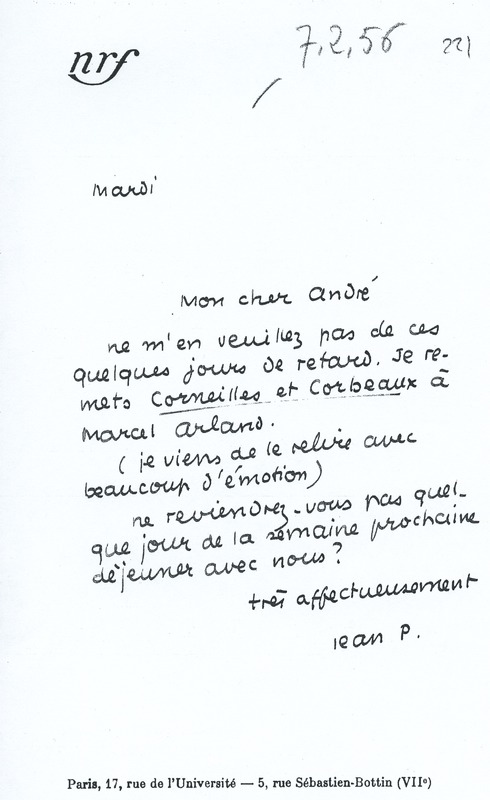 nrf
7.2.56 221
Mardi
Mon cher André
ne m'en veuillez pas de ces
quelques jours de retard. Je re-
mets Corneilles et Corbeaux à
Marcel Arland.
(je viens de le relire avec
beaucoup d'émotion)
ne reviendrez-vous pas quel-
que jour de la semaine prochaine
déjeuner avec nous?
très affectueusement
Jean P.
Paris, 17, rue de l'Université — 5, rue Sébastien-Bottin (VIIᵉ)